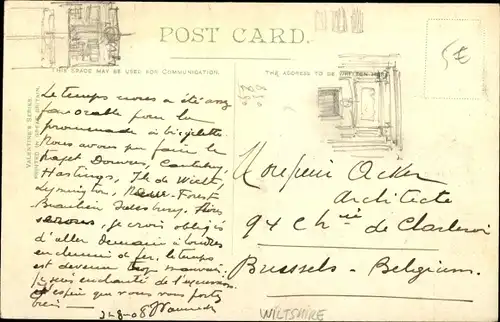 POST CARD.
THIS SPACE MAY BE USED FOR COMMUNICATION.
THE ADDRESS TO BE WRITTEN HERE
5€
VALENTINE'S SERIES
PRINTED IN GREAT BRITAIN.
Le temps nous a été assez
favorable pour la
promenade à bicyclette.
Nous avons pu faire le
trajet Douvres, Canterbury,
Hastings, Ile de Wight,
Lymington, New-Forest
Beaulieu Salisbury. Nous
serons, je crois obligés
d'aller demain à Londres
en chemin de fer, le temps
est devenu trop mauvais.
Je suis enchanté de l'excursion
j'espère que vous vous portez
bien
21-8-08
Monsieur Acker
Architecte
94 Chée de Charleroi
Brussels - Belgium.
WILTSHIRE